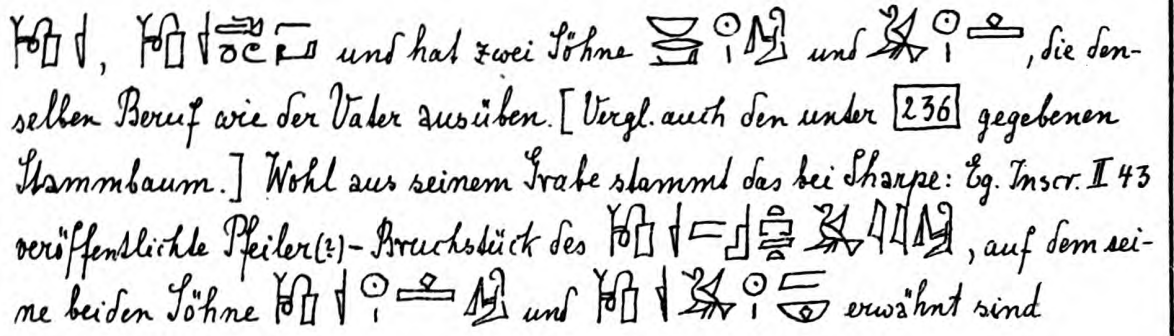 , und hat zwei Söhne und , die den-
selben Beruf wie der Vater ausüben. [Vergl. auch den unter 236 gegebenen
Stammbaum.] Wohl aus seinem Grabe stammt das bei Sharpe: Eg. Inscr. II 43
veröffentlichte Pfeiler(?)-Bruchstück des , auf dem sei-
ne beiden Söhne und erwähnt sind